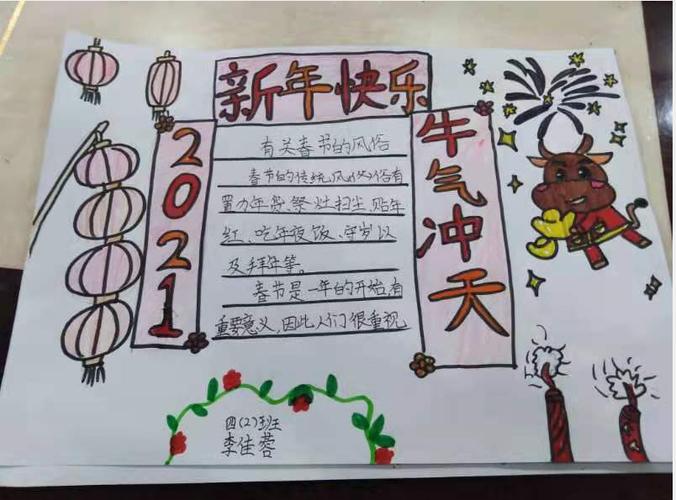 新年快乐
2021
有关春节的风俗
春节的传统风俗有
置办年货、祭灶扫尘、贴年
红、吃年夜饭、守岁以
及拜年等。
春节是一年的开始,有
重要意义,因此人们很重视
牛气冲天
四(2)班
李佳蓉